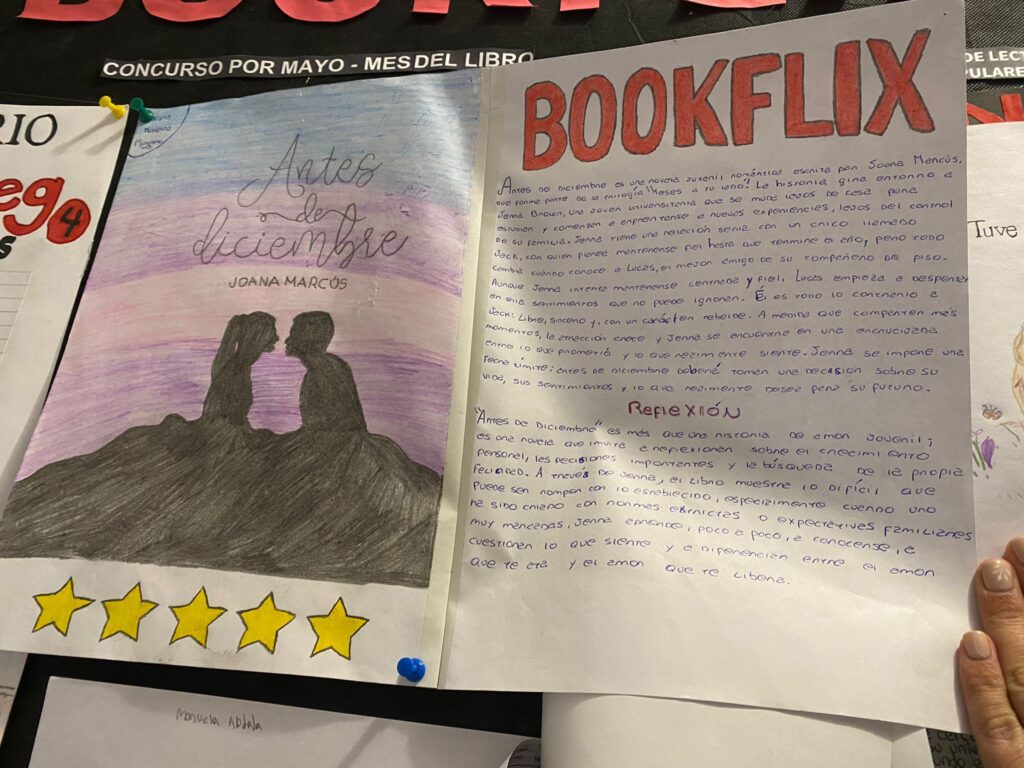 CONCURSO POR MAYO - MES DEL LIBRO
DE LECT
PULARE
RIO
eg
4
s
Antes
de
diciembre
JOANA MARCÚS
BOOKFLIX
Antes de diciembre es una novela juvenil romántica escrita por Joana Marcús,
que forma parte de la trilogía "Meses a tu lado". La historia gira entorno a
Jenna Brown, una joven universitaria que se muda lejos de casa para
estudiar y comenzar a enfrentarse a nuevas experiencias, lejos del control
de su familia. Jenna tiene una relación seria con un chico llamado
Jack, con quien planea mantenerse fiel hasta que termine el año, pero todo
cambia cuando conoce a Lucas, el mejor amigo de su compañero de piso.
Aunque Jenna intenta mantenerse centrada y fiel, Lucas empieza a despertar
en ella sentimientos que no puede ignorar. Él es todo lo contrario a
Jack: Libre, sincero y, con un carácter rebelde. A medida que comparten más
momentos, la atracción crece y Jenna se encuentra en una encrucijada
entre lo que prometió y lo que realmente siente. Jenna se impone una
fecha límite: antes de diciembre deberá tomar una decisión sobre su
vida, sus sentimientos y lo que realmente desea para su futuro.
Reflexión
"Antes de Diciembre" es más que una historia de amor jovenil;
es una novela que invita a reflexionar sobre el crecimiento
personal, las decisiones importantes y la búsqueda de la propia
felicidad. A través de Jenna, el libro muestra lo difícil que
puede ser romper con lo establecido, especialmente cuando uno
ha sido criado con normas estrictas o expectativas familiares
muy marcadas, Jenna aprende, poco a poco, a conocerse, a
cuestionar lo que siente y a diferenciar entre el amor
que te ata y el amor que te libera.
Tuve
Manuela Abdala